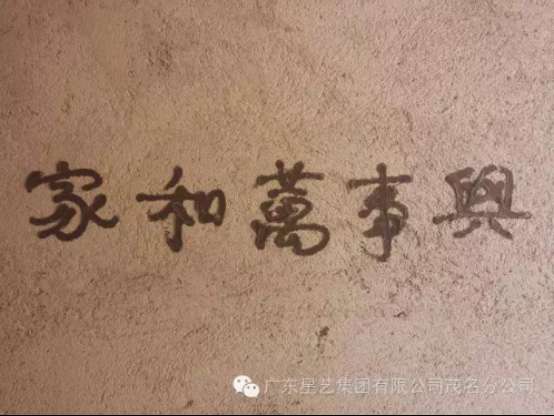 家和萬事興
广东星艺集团有限公司茂名分公司